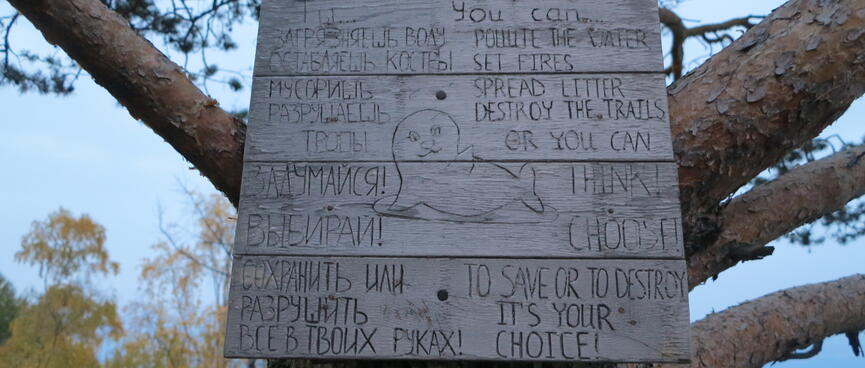 Ты...
ЗАГРЯЗНЯЕШЬ ВОДУ
ОСТАВЛЯЕШЬ КОСТРЫ
МУСОРИШЬ
РАЗРУШАЕШЬ
ТРОПЫ
ЗАДУМАЙСЯ!
ВЫБИРАЙ!
СОХРАНИТЬ ИЛИ
РАЗРУШИТЬ
ВСЕ В ТВОИХ РУКАХ!
You can...
POLLUTE THE WATER
SET FIRES
SPREAD LITTER
DESTROY THE TRAILS
OR YOU CAN
THINK!
CHOOSE!
TO SAVE OR TO DESTROY
IT'S YOUR
CHOICE!